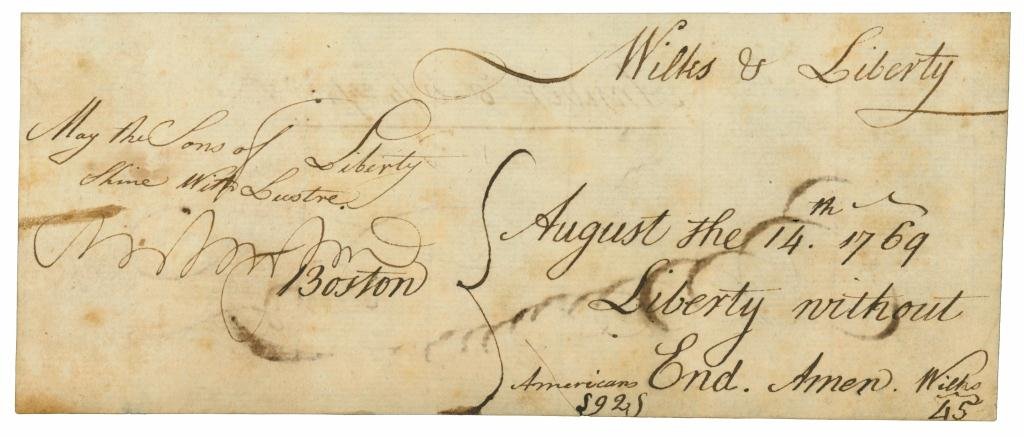 Wilks & Liberty
May the Sons of Liberty
Shine With Lustre.
Boston
August the 14.th 1769
Liberty without
End. Amen.
Americans
92
Wilks
45